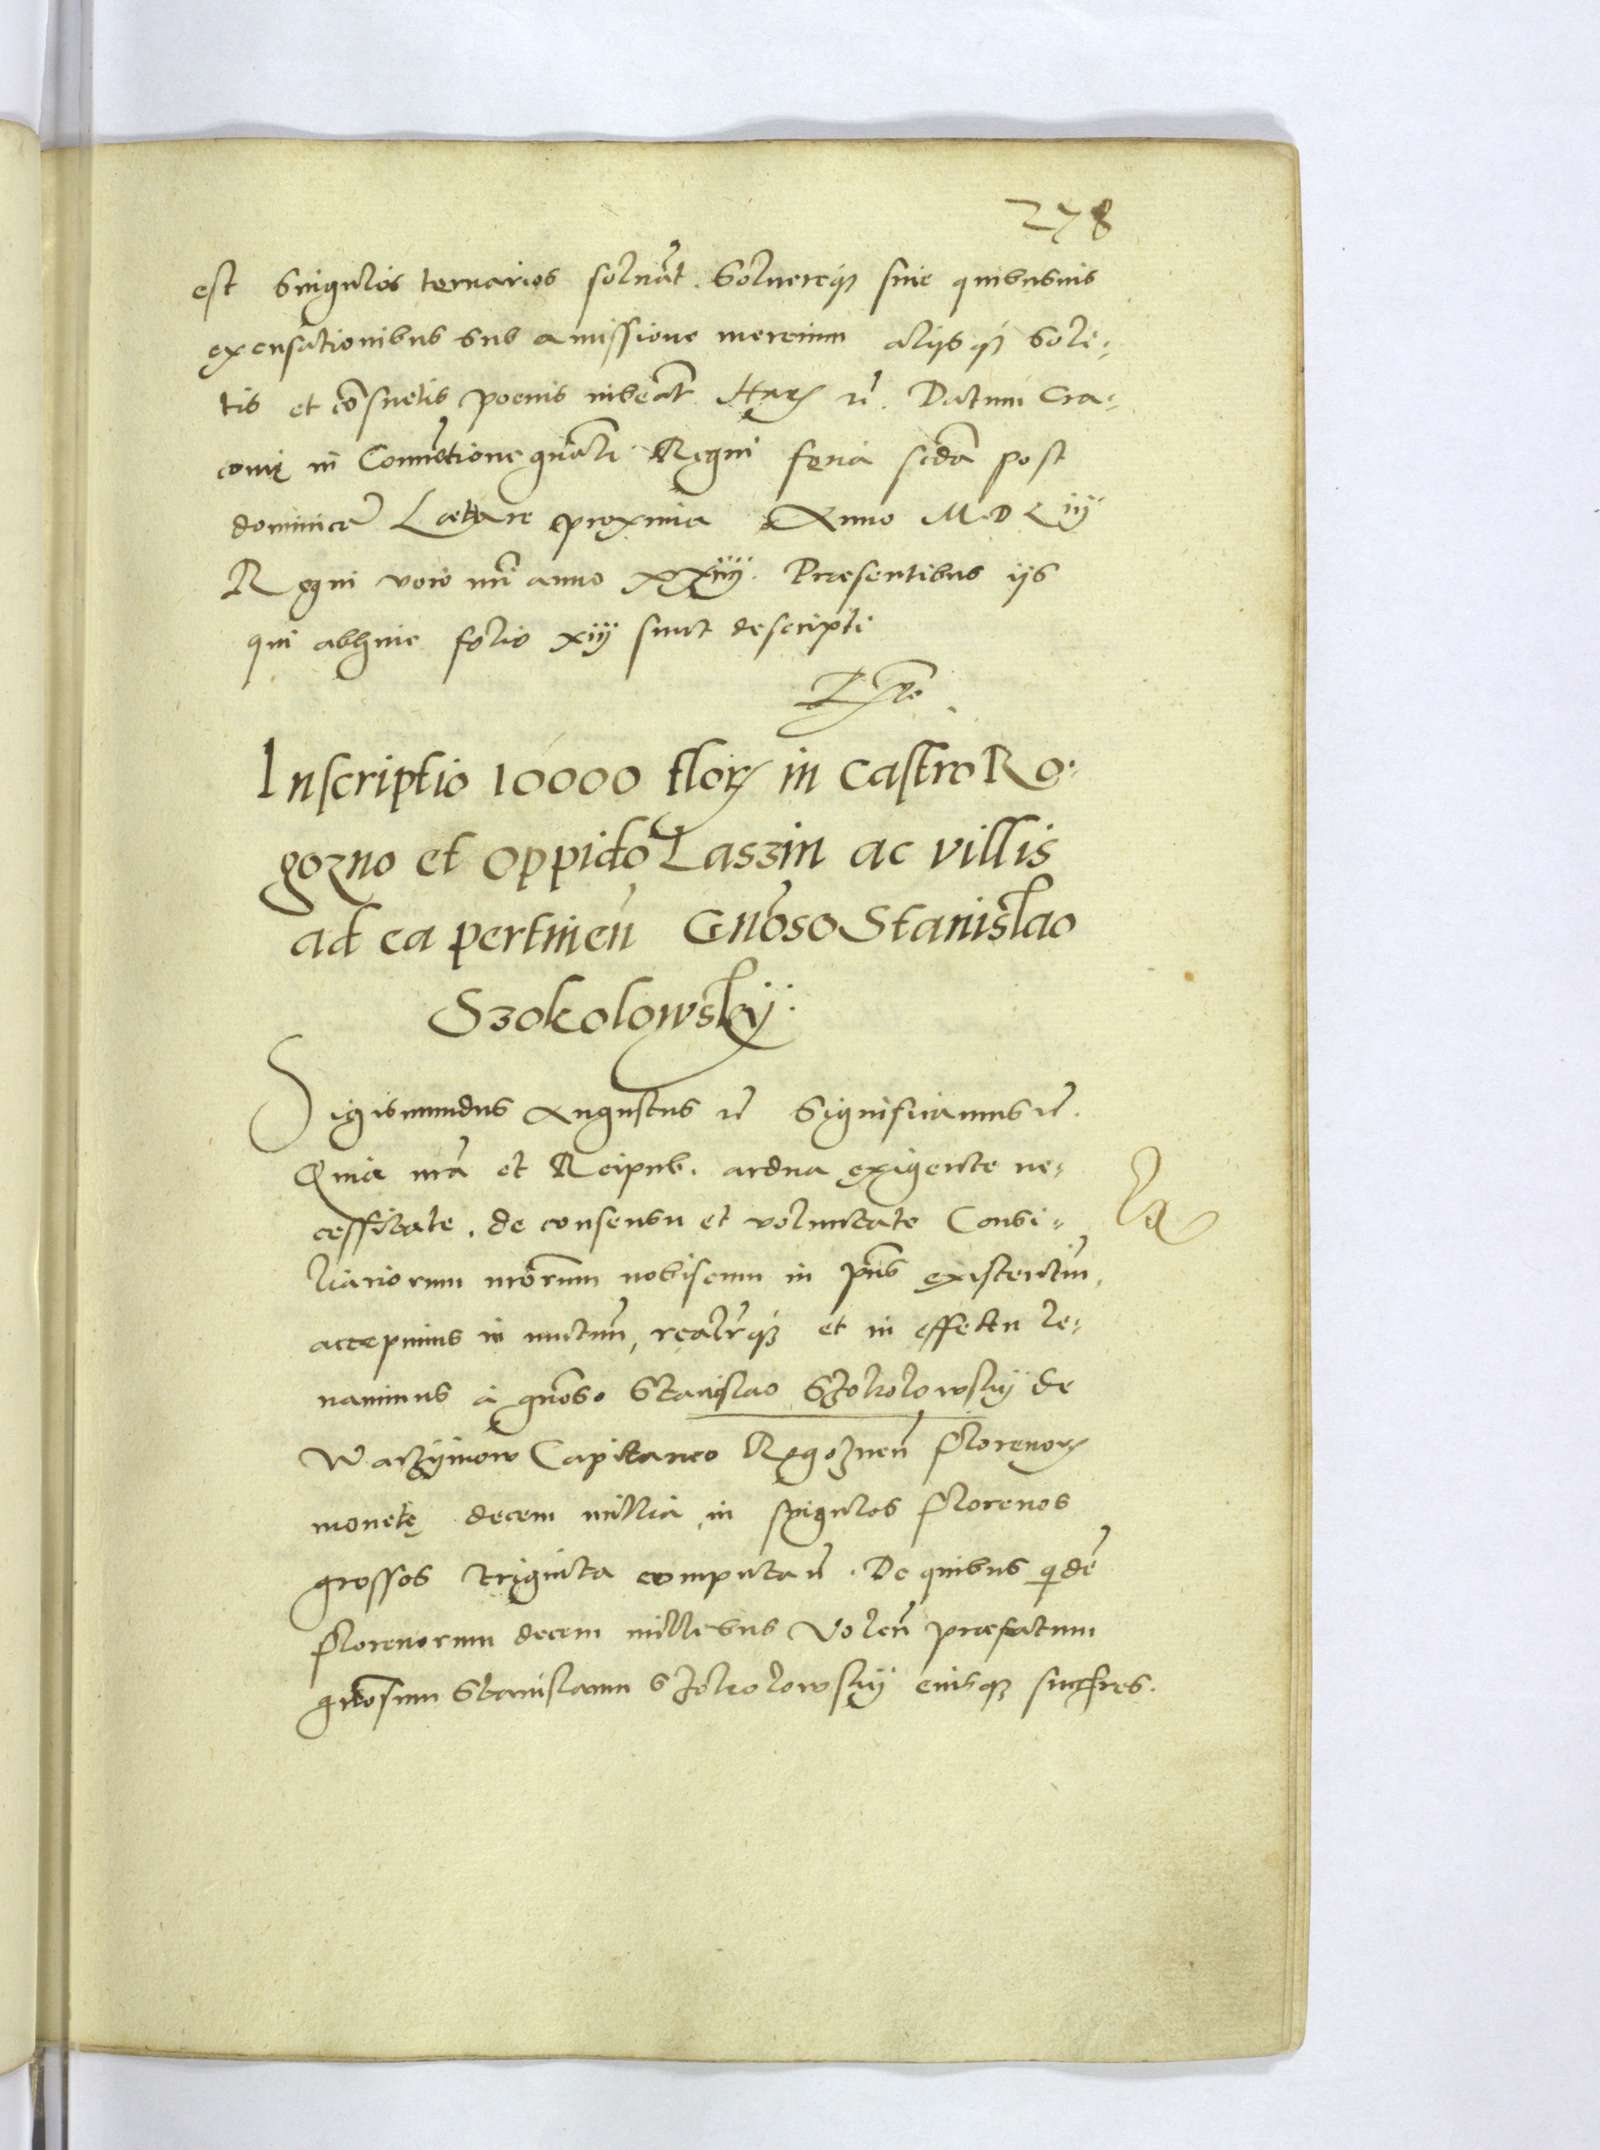 278
est singulos ternarios solvāt. Solvereq; sine quibusvis
excusationibus sub amissione mercium aliisq; soli-
tis et cōsuetis poenis iubeāt. Harꝝ rē. Datum Cra-
covię in Convētione gnāli Regni feria scdā post
dominicā Laetare proxima Anno M D Liij
Regni vero nrī anno XXiiij. Praesentibus ijs
qui abhinc folio xiij sunt descripti
Inscriptio 10000 florꝝ in castro Ro-
gozno et oppido Laszin ac villis
ad ea pertineñ Gnōso Stanislao
Szokolowskÿ.
Sigismundus Augustus rē Significamus rē.
Quia nrā et Reipub. ardua exigente ne-
cessitate, de consensu et voluntate Consi-
liariorum nrōrum nobiscum in pñs existentiū,
accepimus in mutuū, realrq; et in effectu le-
vavimus à gnōso Stanislao Szokolowskÿ de
Warzÿmow Capitaneo Rogoznēn Florenorꝝ
monetę decem millia, in singulos florenos
grossos triginta computañ. De quibus qidē
florenorum decem millibus Volēn praefatum
gnōsum Stanislaum Szokolowskÿ eiusq; succres.